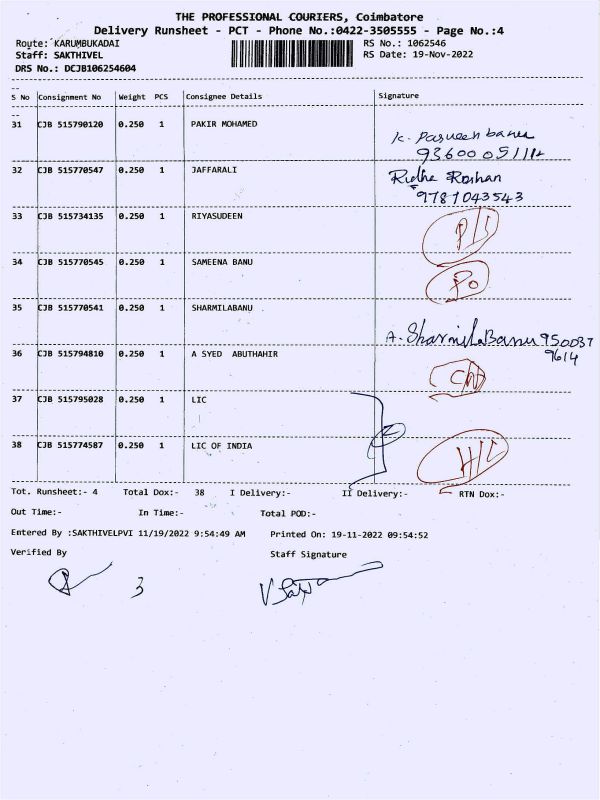 THE PROFESSIONAL COURIERS, Coimbatore
Delivery Runsheet - PCT - Phone No.:0422-3505555 - Page No.:4
Route: KARUMBUKADAI RS No.: 1062546
Staff: SAKTHIVEL RS Date: 19-Nov-2022
DRS No.: DCJB106254604
S No Consignment No Weight PCS Consignee Details Signature
31 CJB 515790120 0.250 1 PAKIR MOHAMED
K. Parveen banu
32 CJB 515770547 0.250 1 JAFFARALI Ridha Roshan
9787043543
33 CJB 515734135 0.250 1 RIYASUDEEN
34 CJB 515770545 0.250 1 SAMEENA BANU
35 CJB 515770541 0.250 1 SHARMILABANU
A. Sharmila Banu 950037
9614
36 CJB 515794810 0.250 1 A SYED ABUTHAHIR
37 CJB 515795028 0.250 1 LIC
38 CJB 515774587 0.250 1 LIC OF INDIA
Tot. Runsheet:- 4 Total Dox:- 38 I Delivery:- II Delivery:- RTN Dox:-
Out Time:- In Time:- Total POD:-
Entered By :SAKTHIVELPVI 11/19/2022 9:54:49 AM Printed On: 19-11-2022 09:54:52
Verified By Staff Signature
3